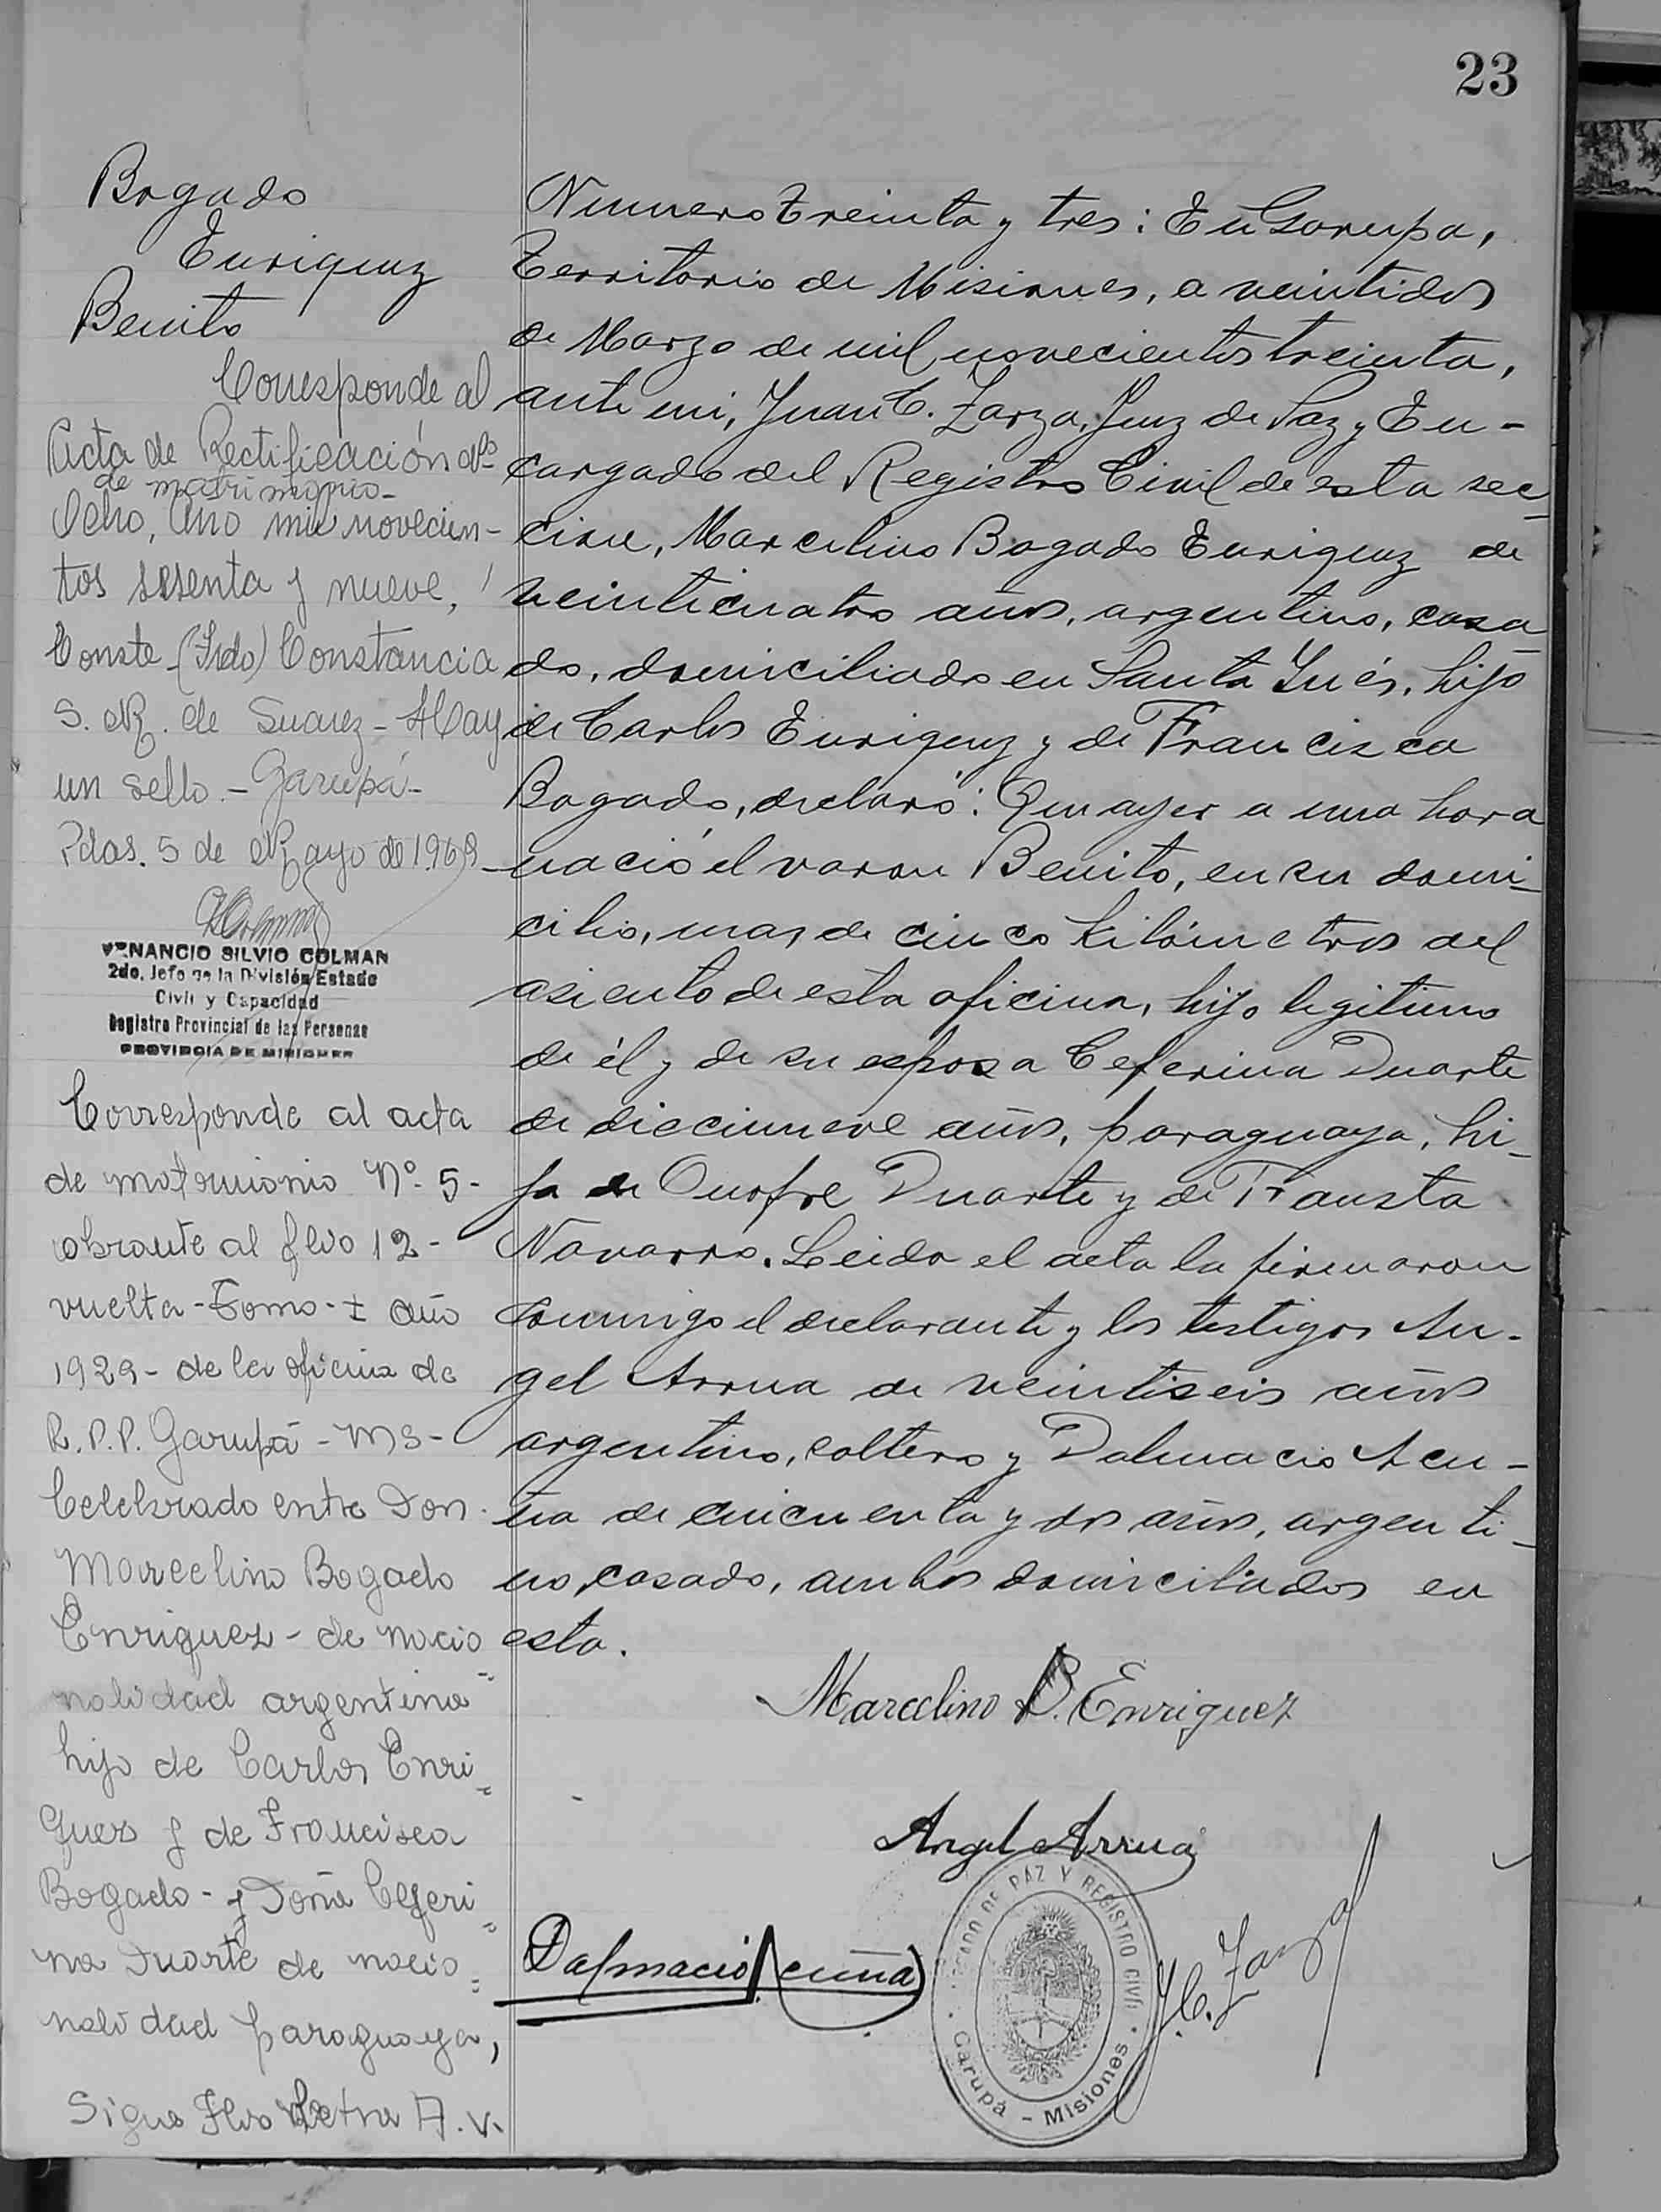 23
Bogado
Enriquez
Benito
Corresponde al
Acta de Rectificación Nº
de matrimonio-
Ocho, Año mil novecien-
tos sesenta y nueve,
Conste-(Fdo) Constancia
S. M. de Suarez - Hay
un sello.- Garupá-
Pdas. 5 de Mayo de 1969
VENANCIO SILVIO COLMAN
2do. Jefe de la División Estado
Civil y Capacidad
Registro Provincial de las Personas
PROVINCIA DE MISIONES
Corresponde al acta
de matrimonio Nº 5-
obrante al flio 12-
vuelta-Tomo- I año
1929- de la oficina de
R.P.P. Garupá - MS-
Celebrado entre Don
Marcelino Bogado
Enriquez - de nacio
nalidad argentina
hijo de Carlos Enri
quez y de Francisca
Bogado - y Doña Ceferi
na Duarte de nacio
nalidad paraguaya,
Sigue Flio Letra A.V.
Numero treinta y tres: En Garupa,
Territorio de Misiones, a veintidos
de Marzo de mil novecientos treinta,
ante mi, Juan C. Zarza, Juez de Paz y En-
cargado del Registro Civil de esta sec
cion, Marcelino Bogado Enriquez de
veinticuatro años, argentino, casa
do, domiciliado en Santa Inés, hijo
de Carlos Enriquez y de Francisca
Bogado, declaró: Que ayer a una hora
nació el varon Benito, en su domi-
cilio, mas de cinco kilómetros del
asiento de esta oficina, hijo legitimo
de él y de su esposa Ceferina Duarte
de diecinueve años, paraguaya, hi-
ja de Onofre Duarte y de Fausta
Navarro. Leida el acta la firmaron
conmigo el declarante y los testigos An-
gel Arrua de veintiseis años
argentino, soltero y Dalmacio Acu-
ña de cincuenta y dos años, argenti-
no, casado, ambos domiciliados en
esta.
Marcelino B. Enriquez
Angel Arrua
Dalmacio Acuña
J.C. Zarza
JUZGADO DE PAZ Y REGISTRO CIVIL
Garupá - Misiones